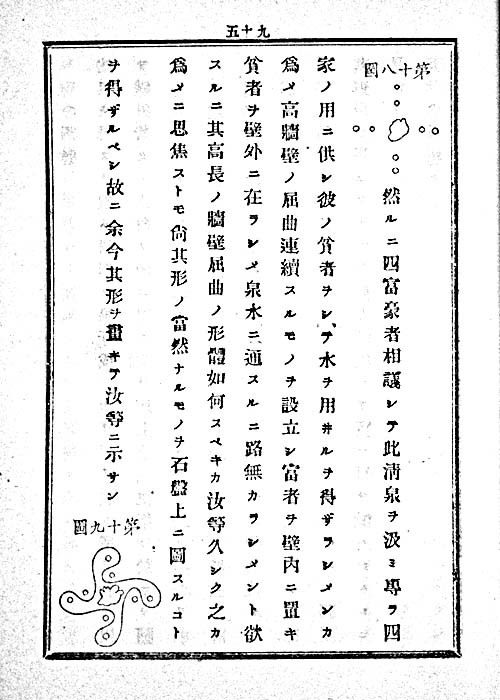 五十九
第十八圖
然ルニ四富豪者相議シテ此清泉ヲ汲ミ專ラ四
家ノ用ニ供シ彼ノ貧者ヲシテ水ヲ用井ルヲ得ザラシメンカ
爲メ高牆壁ノ屈曲連續スルモノヲ設立シ富者ヲ壁内ニ置キ
貧者ヲ壁外ニ在ラシメ泉水ニ通スルニ路無カラシメント欲
スルニ其高長ノ牆壁屈曲ノ形體如何スベキカ汝等久シク之カ
爲メニ思焦ストモ尚其形ノ當然ナルモノヲ石盤上ニ圖スルコト
ヲ得ザルベシ故ニ余今其形ヲ畫キテ汝等ニ示サン
第十九圖